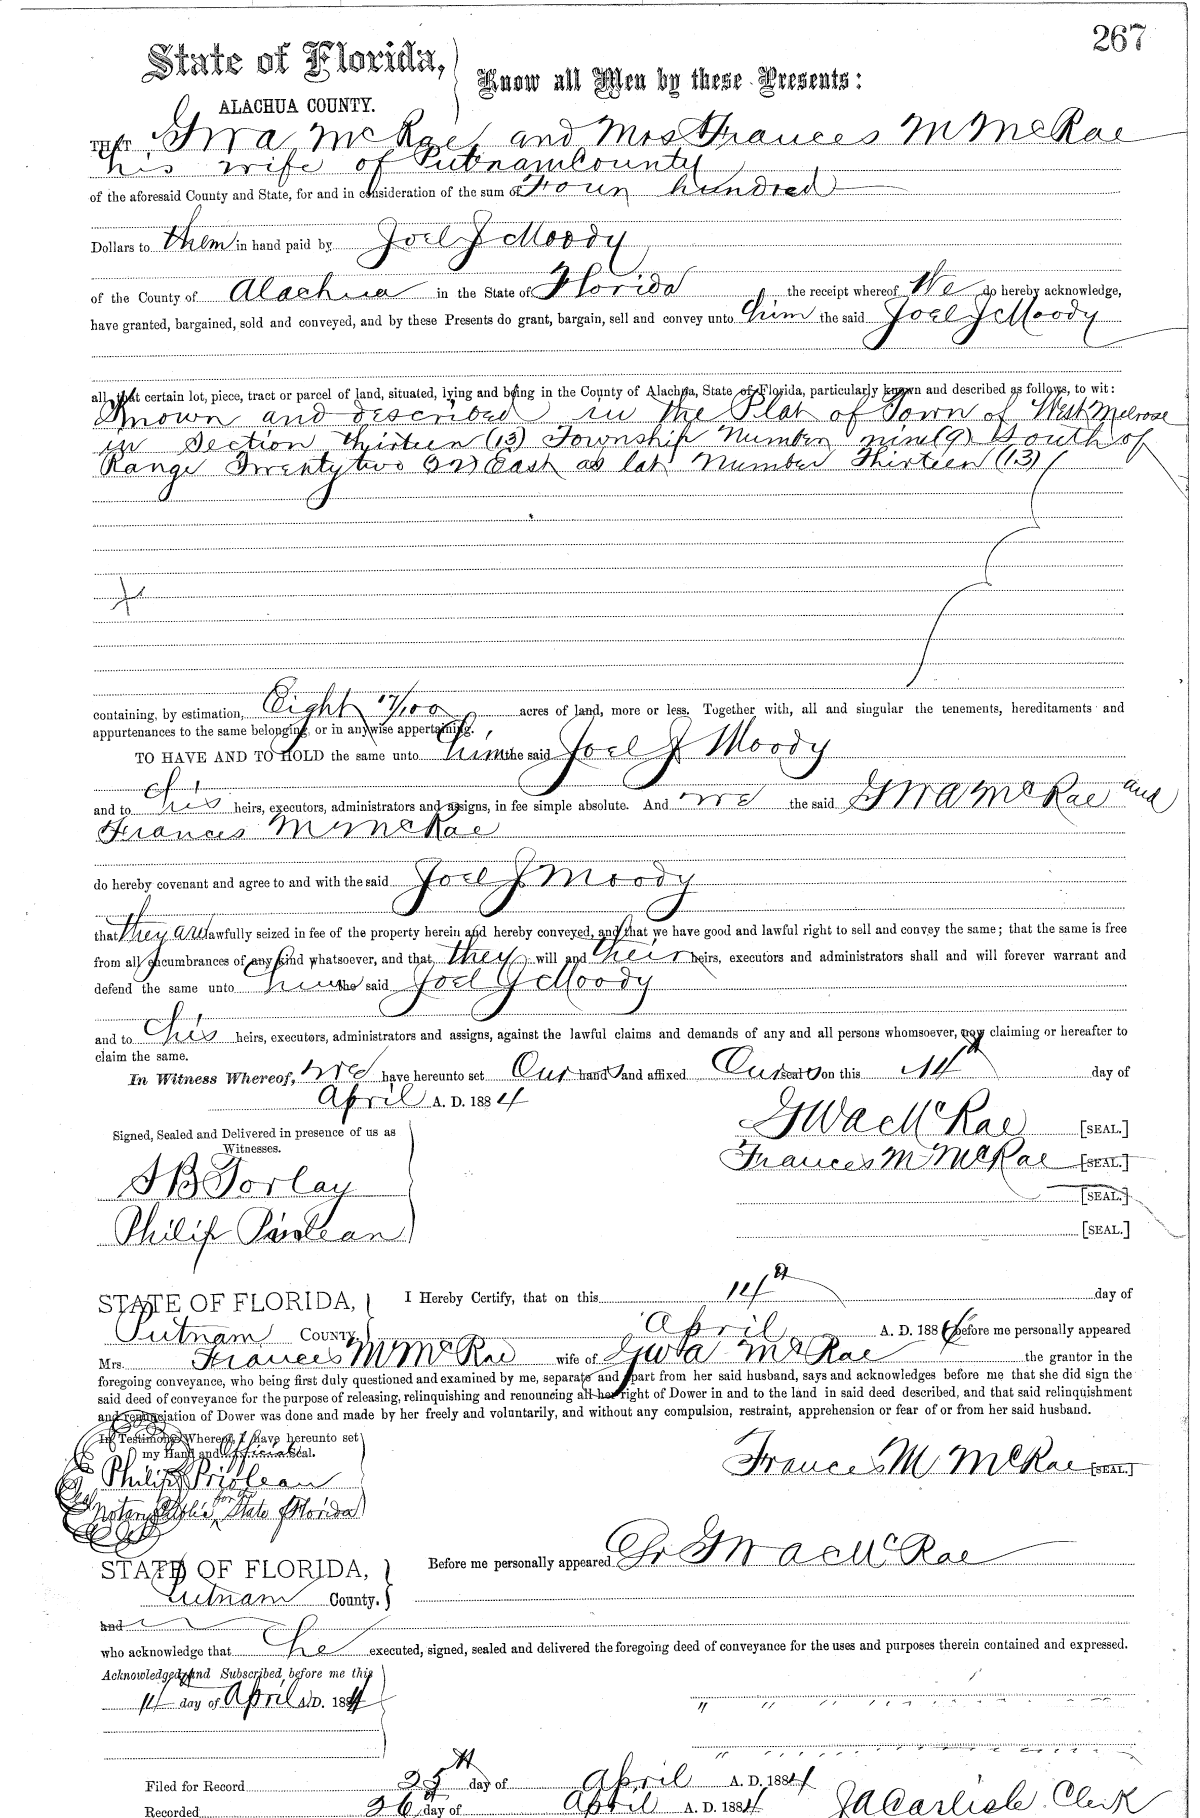 267
State of Florida,
Know all Men by these Presents:
ALACHUA COUNTY.
THAT G W A McRae, and Mrs Frances M McRae
his wife of Putnam County
of the aforesaid County and State, for and in consideration of the sum of Four hundred
Dollars to them in hand paid by Joel J Moody
of the County of Alachua in the State of Florida the receipt whereof We do hereby acknowledge,
have granted, bargained, sold and conveyed, and by these Presents do grant, bargain, sell and convey unto him the said Joel J Moody
all that certain lot, piece, tract or parcel of land, situated, lying and being in the County of Alachua, State of Florida, particularly known and described as follows, to wit:
Known and described in the Plat of Town of West Melrose
in Section thirteen (13) Township Number nine (9) South of
Range Twenty two (22) East as lot Number Thirteen (13)
containing, by estimation, Eight 17/100 acres of land, more or less. Together with, all and singular the tenements, hereditaments and
appurtenances to the same belonging, or in anywise appertaining.
TO HAVE AND TO HOLD the same unto him the said Joel J Moody
and to his heirs, executors, administrators and assigns, in fee simple absolute. And we the said G W A McRae and
Frances M McRae
do hereby covenant and agree to and with the said Joel J Moody
that they are lawfully seized in fee of the property herein and hereby conveyed, and that we have good and lawful right to sell and convey the same; that the same is free
from all encumbrances of any kind whatsoever, and that they will and their heirs, executors and administrators shall and will forever warrant and
defend the same unto him the said Joel J Moody
and to his heirs, executors, administrators and assigns, against the lawful claims and demands of any and all persons whomsoever, now claiming or hereafter to
claim the same.
In Witness Whereof, we have hereunto set Our hands and affixed Our seals on this 14th day of
April A. D. 1884
G W A McRae [SEAL.]
Signed, Sealed and Delivered in presence of us as
Witnesses.
Frances M McRae [SEAL.]
[SEAL.]
Philip Priolean [SEAL.]
STATE OF FLORIDA, I Hereby Certify, that on this 14th day of
Putnam COUNTY. April A. D. 1884 before me personally appeared
Mrs. Frances M McRae wife of G W A McRae the grantor in the
foregoing conveyance, who being first duly questioned and examined by me, separate and apart from her said husband, says and acknowledges before me that she did sign the
said deed of conveyance for the purpose of releasing, relinquishing and renouncing all her right of Dower in and to the land in said deed described, and that said relinquishment
and renunciation of Dower was done and made by her freely and voluntarily, and without any compulsion, restraint, apprehension or fear of or from her said husband.
In Testimony Whereof, I have hereunto set
my Hand and Official Seal.
Frances M McRae [SEAL.]
Philip Priolean
Seal Notary Public for the State of Florida
STATE OF FLORIDA, Before me personally appeared Dr G W A McRae
Putnam County.
and
who acknowledge that he executed, signed, sealed and delivered the foregoing deed of conveyance for the uses and purposes therein contained and expressed.
Acknowledged and Subscribed before me this
14 day of April A.D. 1884
Filed for Record 25th day of April A. D. 1884
Recorded 26 day of April A. D. 1884 J A Carlisle Clerk